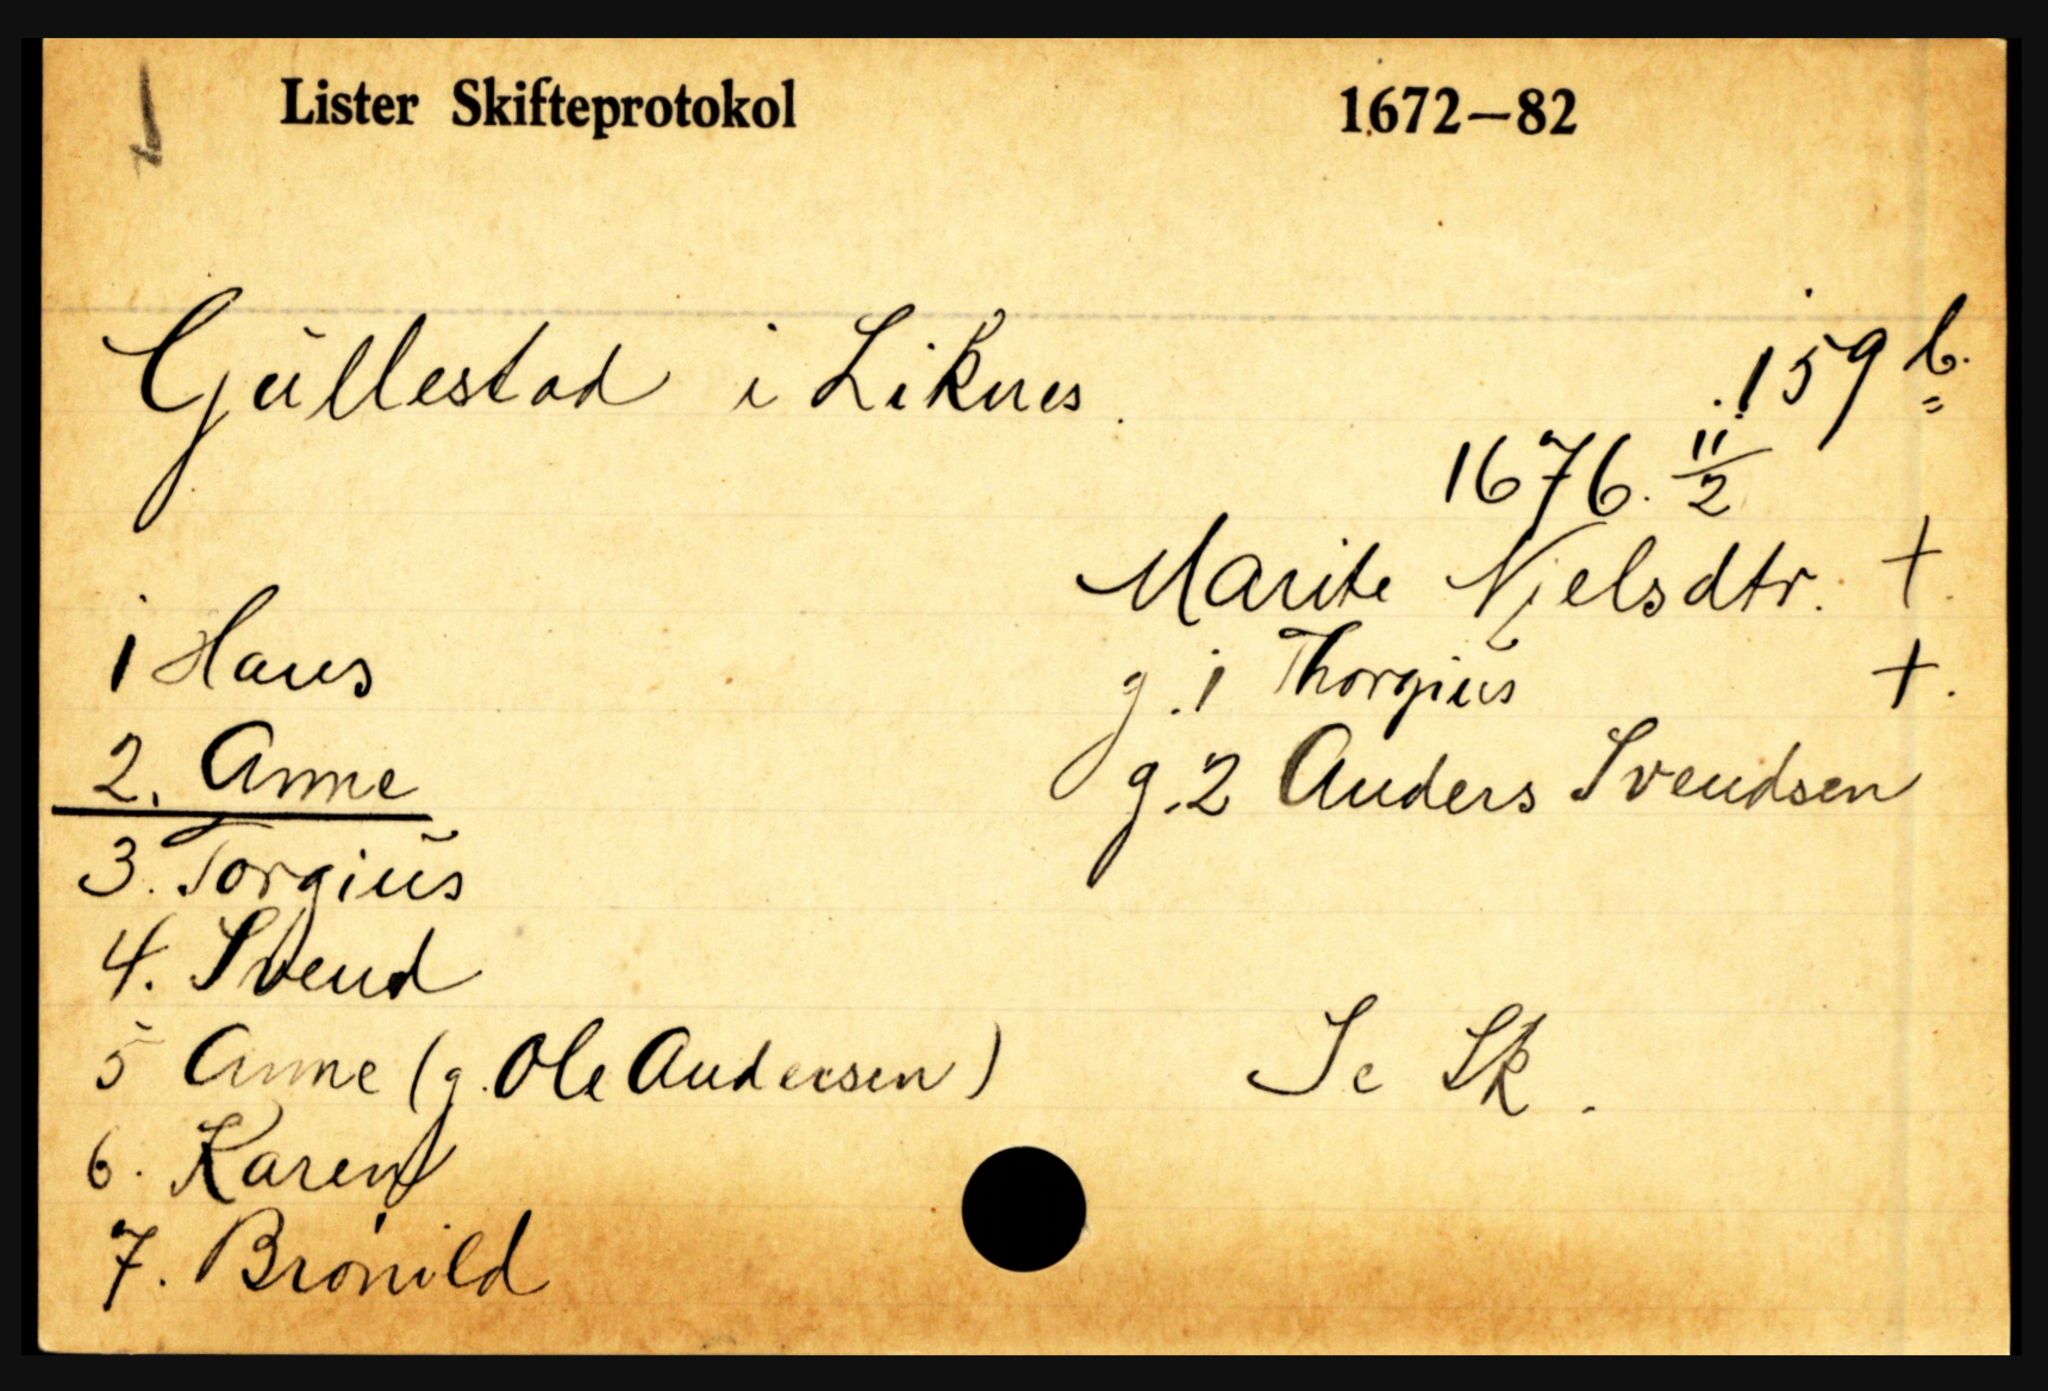 Lister Skifteprotokol 1672—82
Gjüllestad i Liknes.
159 b.
1676. 11/2
Marite Njelsdtr. +.
1 Hans
g. 1 Thorgiŭs +.
2. Anne
g. 2 Anders Svendsen
3. Torgiŭs
4. Svend
5 Anne (g. Ole Andersen)
Se Sk.
6. Karen
7. Brönild